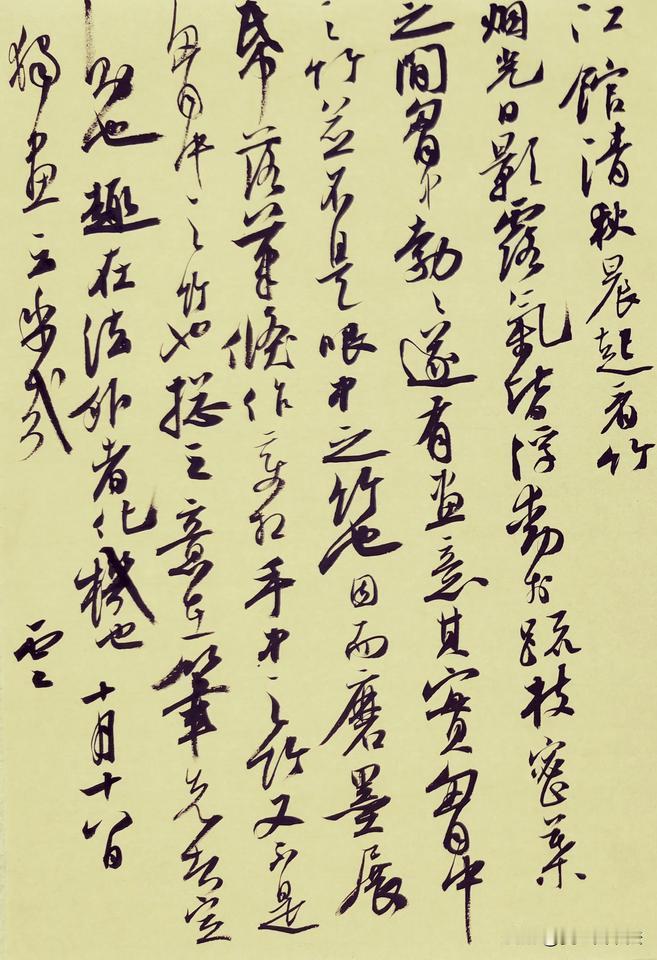 江館清秋晨起看竹
烟光日影露氣皆浮動於疏枝密葉
之間胷中勃々遂有畫意其實胷中
之竹並不是眼中之竹也因而磨墨展
帋落筆倏作變相手中之竹又不是
胷中之竹也總之意在筆先者定
則也趣在法外者化機也十月十八日
獨畫云乎哉 雲